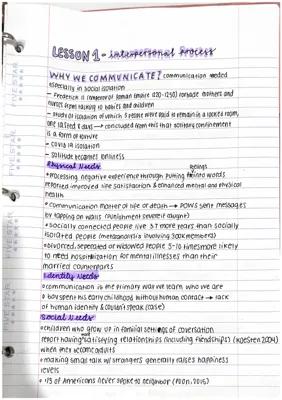 LESSON 1 - interpersonal process
WHY WE COMMUNICATE? communication needed
especially in social isolation
- Frederick II (emperor of Roman Empire 1220-1250) forbade mothers and
nurses from talking to babies and children
- study of isolation of which 5 people were paid to remain in a locked room,
one lasted 8 days → concluded from this that solitary confinement
is a form of torture
- COVID 19 isolation
- solitude becomes loneliness
Physical Needs
• Processing negative experience through putting feelings into words
reported improved life satisfaction & enhanced mental and physical
health
• communication matter of life or death → POWS sent messages
by tapping on walls (punishment severe if caught)
• Socially connected people live 3.7 more years than socially
isolated people (metaanalysis involving 300K members)
• divorced, seperated or widowed people 5-10 times more likely
to need hospitalization for mental illnesses than their
married counterparts
Identity Needs
• communication is the primary way we learn who we are
• boy spent his early childhood without human contact → lack
of human identity & couldn't speak
Social Needs
• children who grow up in familial settings of conversation
report having most satisfying relationships (including friendships) (Koesten 2004)
when they become adults
• making small talk w/ strangers generally raises happiness
levels
• 1/3 of Americans never spoke to neighbor (Poon, 2015)
FIVE STAR
FIVE STAR
FIVE STAR